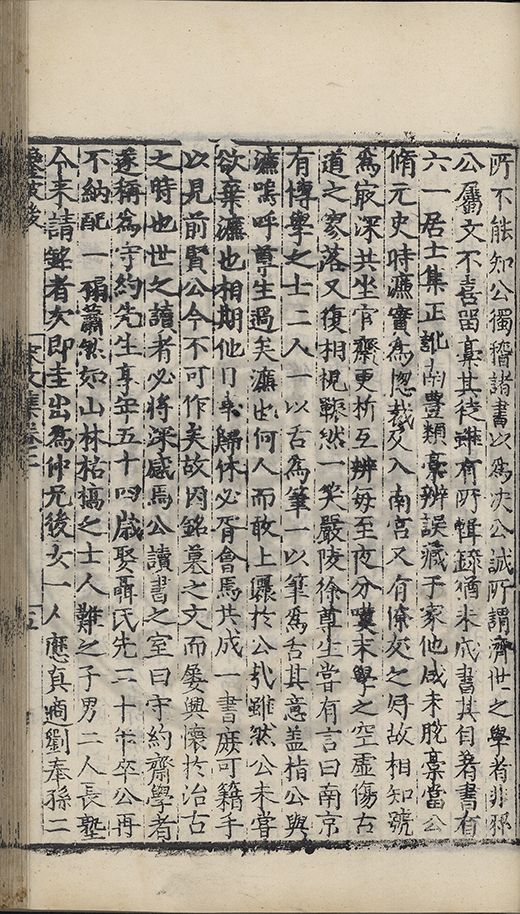 所不能知公獨稽諸書以為决公誠所謂齊世之學者非歟
公屬文不喜留稾其徒雖有所輯録猶未成書其自著書有
六一居士集正訛南豐類稾辨誤藏于家他咸未脫稾當公
脩元史時濂實為總裁及入南宫又有僚友之好故相知號
為㝡深共坐官齋更析互辨毎至夜分嘆末學之空虛傷古
道之寥落又復相視囅然一笑嚴陵徐尊生嘗有言曰南京
有博學之士二人一以舌為筆一以筆為舌其意盖指公與
濂嗚呼尊生過矣濂也何人而敢上儗於公㢤雖然公未嘗
欲棄濂也相期他日或歸休必胥會焉共成一書庶可籍手
以見前賢公今不可作矣故因銘墓之文而屡興懷於治古
之時也世之讀者必將深感焉公讀書之室曰守約齋學者
遂稱為守約先生享年五十四歲娶聶氏先二十年卒公再
不納配一榻蕭然如山林枯槁之士人難之子男二人長塾
今来請銘者次即圭出為仲元後女一人應真適劉奉孫二
宋文集卷二
十五